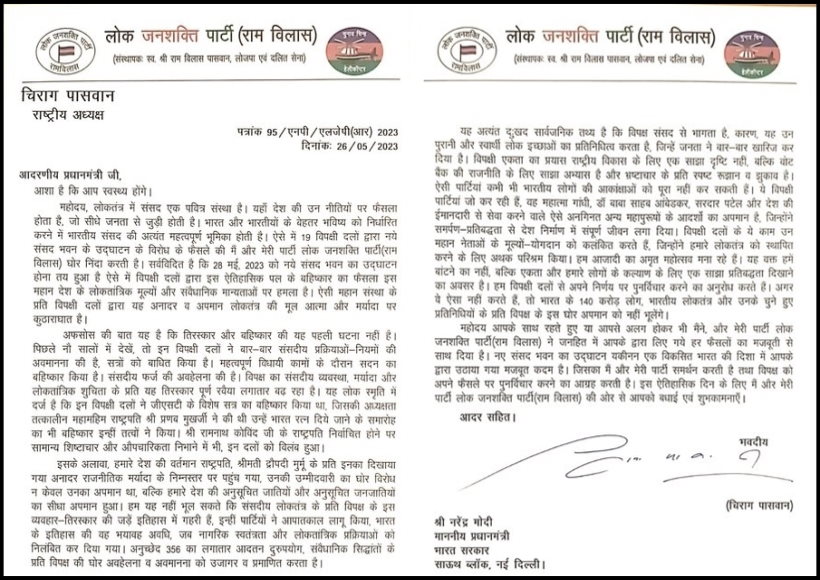 लोक जनशक्ति पार्टी (राम विलास)
(संस्थापकः स्व. श्री राम विलास पासवान, लोजपा एवं दलित सेना)
लोक जनशक्ति पार्टी
रामविलास
चुनाव चिन्ह
हेलीकॉप्टर
चिराग पासवान
राष्ट्रीय अध्यक्ष
पत्रांक 95/एनपी/एलजेपी(आर) 2023
दिनांकः 26/05/2023
आदरणीय प्रधानमंत्री जी,
आशा है कि आप स्वस्थ्य होंगे।
महोदय, लोकतंत्र में संसद एक पवित्र संस्था है। यहाँ देश की उन नीतियों पर फैसला
होता है, जो सीधे जनता से जुड़ी होती है। भारत और भारतीयों के बेहतर भविष्य को निर्धारित
करने में भारतीय संसद की अत्यंत महत्वपूर्ण भूमिका होती है। ऐसे में 19 विपक्षी दलों द्वारा नये
संसद भवन के उद्घाटन के विरोध के फैसले की मैं और मेरी पार्टी लोक जनशक्ति पार्टी(राम
विलास) घोर निंदा करती है। सर्वविदित है कि 28 मई, 2023 को नये संसद भवन का उद्घाटन
होना तय हुआ है ऐसे में विपक्षी दलों द्वारा इस ऐतिहासिक पल के बहिष्कार का फैसला इस
महान देश के लोकतांत्रिक मूल्यों और संवैधानिक मान्यताओं पर हमला है। ऐसी महान संस्था के
प्रति विपक्षी दलों द्वारा यह अनादर व अपमान लोकतंत्र की मूल आत्मा और मर्यादा पर
कुठाराघात है।
अफसोस की बात यह है कि तिरस्कार और बहिष्कार की यह पहली घटना नहीं है।
पिछले नौ सालों में देखें, तो इन विपक्षी दलों ने बार-बार संसदीय प्रक्रियाओं-नियमों की
अवमानना की है, सत्रों को बाधित किया है। महत्वपूर्ण विधायी कामों के दौरान सदन का
बहिष्कार किया है। संसदीय फर्ज की अवहेलना की है। विपक्ष का संसदीय व्यवस्था, मर्यादा और
लोकतांत्रिक शुचिता के प्रति यह तिरस्कार पूर्ण रवैया लगातार बढ़ रहा है। यह लोक स्मृति में
दर्ज है कि इन विपक्षी दलों ने जीएसटी के विशेष सत्र का बहिष्कार किया था, जिसकी अध्यक्षता
तत्कालीन महामहिम राष्ट्रपति श्री प्रणब मुखर्जी ने की थी उन्हें भारत रत्न दिये जाने के समारोह
का भी बहिष्कार इन्हीं तत्वों ने किया। श्री रामनाथ कोविंद जी के राष्ट्रपति निर्वाचित होने पर
सामान्य शिष्टाचार और औपचारिकता निभाने में भी, इन दलों को विलंब हुआ।
इसके अलावा, हमारे देश की वर्तमान राष्ट्रपति, श्रीमती द्रौपदी मुर्मू के प्रति इनका दिखाया
गया अनादर राजनीतिक मर्यादा के निम्नस्तर पर पहुंच गया, उनकी उम्मीदवारी का घोर विरोध
न केवल उनका अपमान था, बल्कि हमारे देश की अनुसूचित जातियों और अनुसूचित जनजातियों
का सीधा अपमान हुआ। हम यह नहीं भूल सकते कि संसदीय लोकतंत्र के प्रति विपक्ष के इस
व्यवहार-तिरस्कार की जड़ें इतिहास में गहरी हैं, इन्हीं पार्टियों ने आपातकाल लागू किया, भारत
के इतिहास की वह भयावह अवधि, जब नागरिक स्वतंत्रता और लोकतांत्रिक प्रक्रियाओं को
निलंबित कर दिया गया। अनुच्छेद 356 का लगातार आदतन दुरुपयोग, संवैधानिक सिद्धांतों के
प्रति विपक्ष की घोर अवहेलना व अवमानना को उजागर व प्रमाणित करता है।
लोक जनशक्ति पार्टी (राम विलास)
(संस्थापकः स्व. श्री राम विलास पासवान, लोजपा एवं दलित सेना)
लोक जनशक्ति पार्टी
रामविलास
चुनाव चिन्ह
हेलीकॉप्टर
यह अत्यंत दुःखद सार्वजनिक तथ्य है कि विपक्ष संसद से भागता है, कारण, यह उन
पुरानी और स्वार्थी लोक इच्छाओं का प्रतिनिधित्व करता है, जिन्हें जनता ने बार-बार खारिज कर
दिया है। विपक्षी एकता का प्रयास राष्ट्रीय विकास के लिए एक साझा दृष्टि नहीं, बल्कि वोट
बैंक की राजनीति के लिए साझा अभ्यास है और भ्रष्टाचार के प्रति स्पष्ट रूझान व झुकाव है।
ऐसी पार्टियां कभी भी भारतीय लोगों की आकांक्षाओं को पूरा नहीं कर सकती हैं। ये विपक्षी
पार्टियां जो कर रही हैं, वह महात्मा गांधी, डॉ बाबा साहब आंबेडकर, सरदार पटेल और देश की
ईमानदारी से सेवा करने वाले ऐसे अनगिनत अन्य महापुरूषों के आदर्शों का अपमान है, जिन्होंने
समर्पण-प्रतिबद्धता से देश निर्माण में संपूर्ण जीवन लगा दिया। विपक्षी दलों के ये काम उन
महान नेताओं के मूल्यों-योगदान को कलंकित करते हैं, जिन्होंने हमारे लोकतंत्र को स्थापित
करने के लिए अथक परिश्रम किया। हम आजादी का अमृत महोत्सव मना रहे हैं। यह वक्त हमें
बांटने का नहीं, बल्कि एकता और हमारे लोगों के कल्याण के लिए एक साझा प्रतिबद्धता दिखाने
का अवसर है। हम विपक्षी दलों से अपने निर्णय पर पुनर्विचार करने का अनुरोध करते हैं। अगर
वे ऐसा नहीं करते हैं, तो भारत के 140 करोड़ लोग, भारतीय लोकतंत्र और उनके चुने हुए
प्रतिनिधियों के प्रति विपक्ष के इस घोर अपमान को नहीं भूलेंगे।
महोदय आपके साथ रहते हुए या आपसे अलग होकर भी मैंने, और मेरी पार्टी लोक
जनशक्ति पार्टी(राम विलास) ने जनहित में आपके द्वारा लिए गये हर फैसलों का मजबूती से
साथ दिया है। नए संसद भवन का उद्घाटन यकीनन एक विकसित भारत की दिशा में आपके
द्वारा उठाया गया मजबूत कदम है। जिसका मैं और मेरी पार्टी समर्थन करती है तथा विपक्ष को
अपने फैसले पर पुनर्विचार करने का आग्रह करती है। इस ऐतिहासिक दिन के लिए मैं और मेरी
पार्टी लोक जनशक्ति पार्टी(राम विलास) की ओर से आपको बधाई एवं शुभकामनाएँ।
आदर सहित।
भवदीय
(चिराग पासवान)
श्री नरेंद्र मोदी
माननीय प्रधानमंत्री
भारत सरकार
साऊथ ब्लॉक, नई दिल्ली।